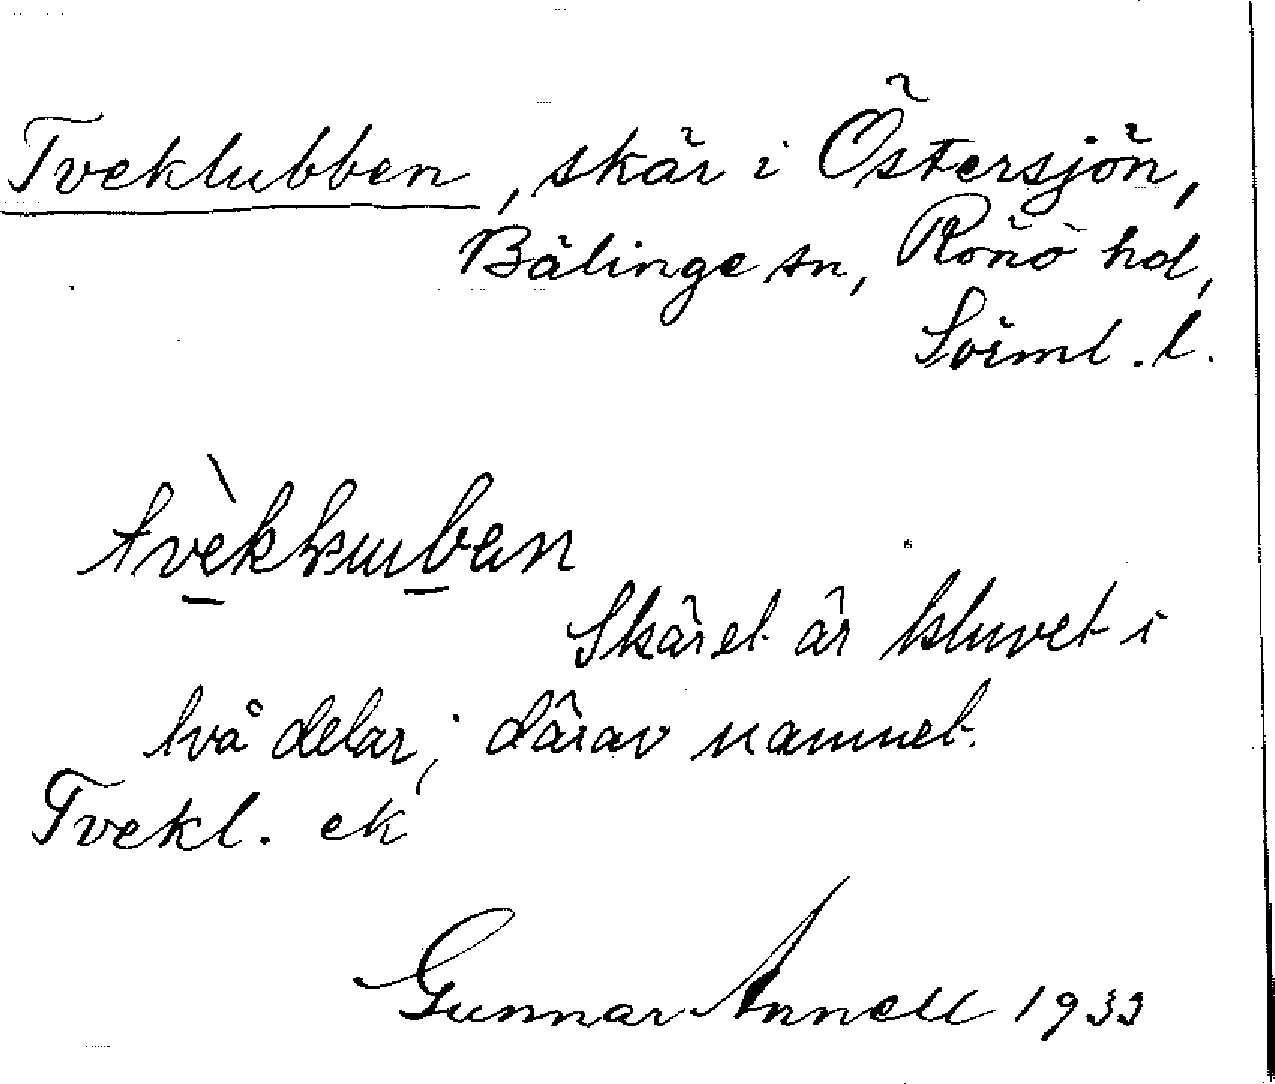 Tveklubben, skär i Östersjön,
Bälinge sn, Rönö hd,
Sörml. l.
Skäret är kluvet i
två delar; därav namnet.
Tvekl. ek
Gunnar Annell 1933